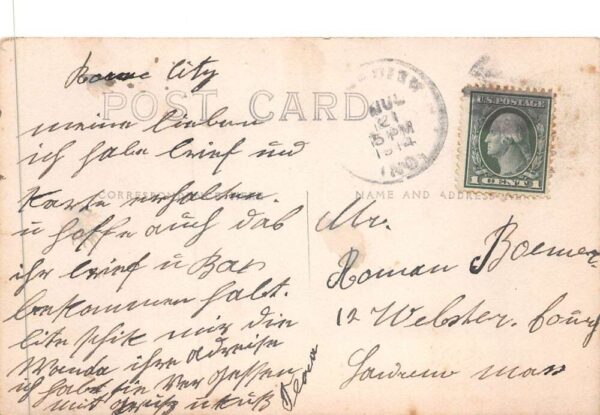 Rome City
POST CARD
meine lieben
ich habe brief und
Karte erhalten.
CORRESPONDENCE HERE
u hoffe auch das
ihr brief u Bax
bekommen habt.
bite schik mir die
Wanda ihre adreise
ich habe sie vergessen
mit gruß u kuß
JUL
21
5 PM
1914
IND.
U.S. POSTAGE
1 CENT 1
NAME AND ADDRESS
Mr.
Roman Boemer
12 Webster. Court
Lawrence Mass